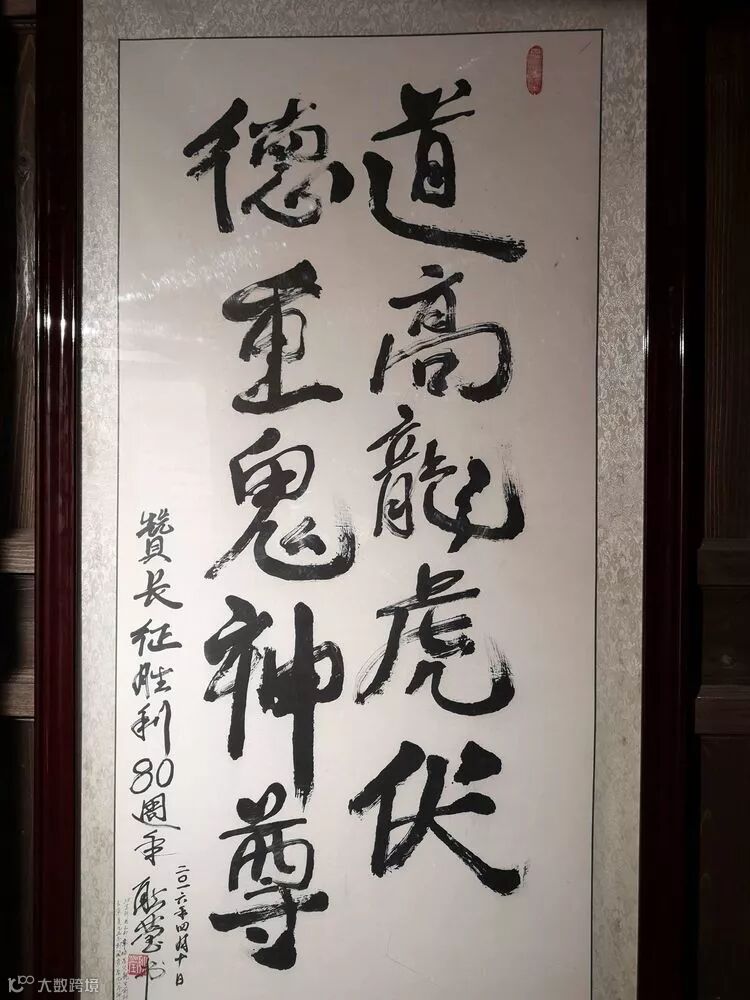 道高龍虎伏
德重鬼神尊
贊长征胜利80周年
二〇一六年四月十日
大数跨境